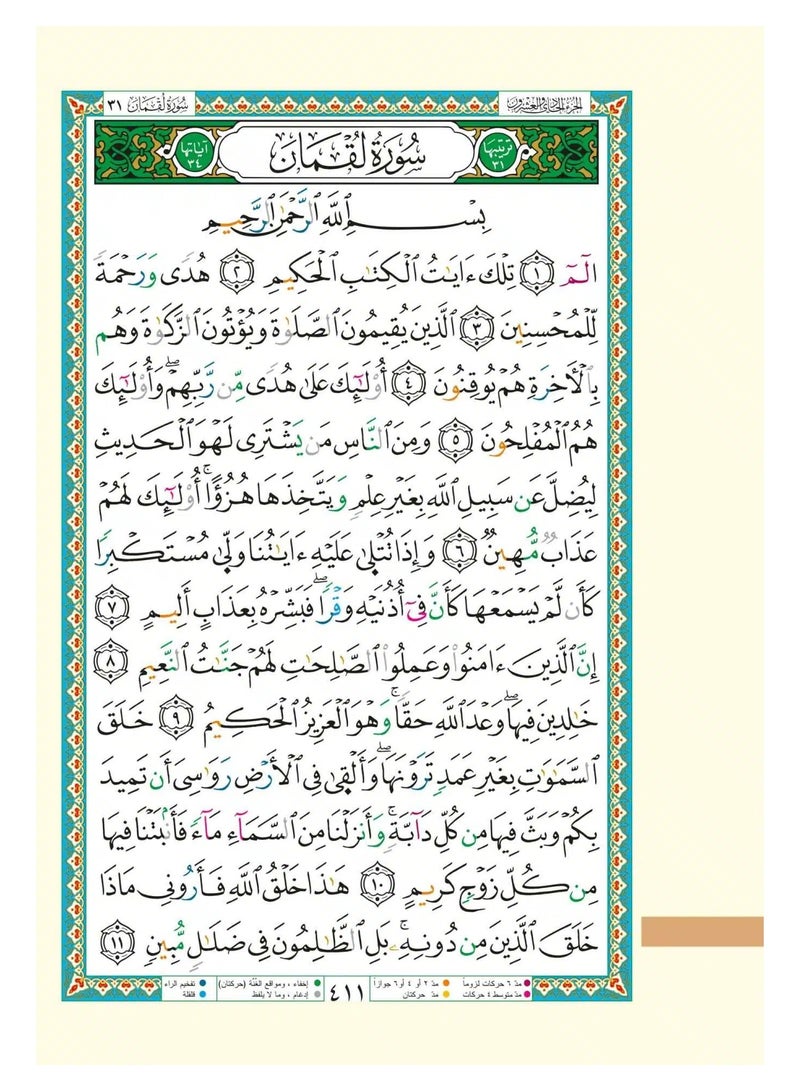 الجزء الحادي والعشرون
سورة لقمان ٣١
ترتيبها ٣١
سُورَةُ لُقۡمَانَ
آياتها ٣٤
بِسۡمِ ٱللَّهِ ٱلرَّحۡمَٰنِ ٱلرَّحِيمِ
الٓمٓ ١ تِلۡكَ ءَايَٰتُ ٱلۡكِتَٰبِ ٱلۡحَكِيمِ ٢ هُدٗى وَرَحۡمَةٗ
لِّلۡمُحۡسِنِينَ ٣ ٱلَّذِينَ يُقِيمُونَ ٱلصَّلَوٰةَ وَيُؤۡتُونَ ٱلزَّكَوٰةَ وَهُم
بِٱلۡأٓخِرَةِ هُمۡ يُوقِنُونَ ٤ أُوْلَٰٓئِكَ عَلَىٰ هُدٗى مِّن رَّبِّهِمۡۖ وَأُوْلَٰٓئِكَ
هُمُ ٱلۡمُفۡلِحُونَ ٥ وَمِنَ ٱلنَّاسِ مَن يَشۡتَرِي لَهۡوَ ٱلۡحَدِيثِ
لِيُضِلَّ عَن سَبِيلِ ٱللَّهِ بِغَيۡرِ عِلۡمٖ وَيَتَّخِذَهَا هُزُوًاۚ أُوْلَٰٓئِكَ لَهُمۡ
عَذَابٞ مُّهِينٞ ٦ وَإِذَا تُتۡلَىٰ عَلَيۡهِ ءَايَٰتُنَا وَلَّىٰ مُسۡتَكۡبِرٗا
كَأَن لَّمۡ يَسۡمَعۡهَا كَأَنَّ فِيٓ أُذُنَيۡهِ وَقۡرٗاۖ فَبَشِّرۡهُ بِعَذَابٍ أَلِيمٍ ٧
إِنَّ ٱلَّذِينَ ءَامَنُواْ وَعَمِلُواْ ٱلصَّٰلِحَٰتِ لَهُمۡ جَنَّٰتُ ٱلنَّعِيمِ ٨
خَٰلِدِينَ فِيهَاۖ وَعۡدَ ٱللَّهِ حَقّٗاۚ وَهُوَ ٱلۡعَزِيزُ ٱلۡحَكِيمُ ٩ خَلَقَ
ٱلسَّمَٰوَٰتِ بِغَيۡرِ عَمَدٖ تَرَوۡنَهَاۖ وَأَلۡقَىٰ فِي ٱلۡأَرۡضِ رَوَٰسِيَ أَن تَمِيدَ
بِكُمۡ وَبَثَّ فِيهَا مِن كُلِّ دَآبَّةٖۚ وَأَنزَلۡنَا مِنَ ٱلسَّمَآءِ مَآءٗ فَأَنۢبَتۡنَا فِيهَا
مِن كُلِّ زَوۡجٖ كَرِيمٍ ١٠ هَٰذَا خَلۡقُ ٱللَّهِ فَأَرُونِي مَاذَا
خَلَقَ ٱلَّذِينَ مِن دُونِهِۦۚ بَلِ ٱلظَّٰلِمُونَ فِي ضَلَٰلٖ مُّبِينٖ ١١
مدّ ٦ حركات لزوماً مدّ ٢ أو ٤ أو ٦ جوازاً
مدّ متوسط ٤ حركات مدّ حركتان
٤١١
إخفاء ، ومواقع الغنّة (حركتان) تفخيم الراء
إدغام ، وما لا يلفظ قلقلة